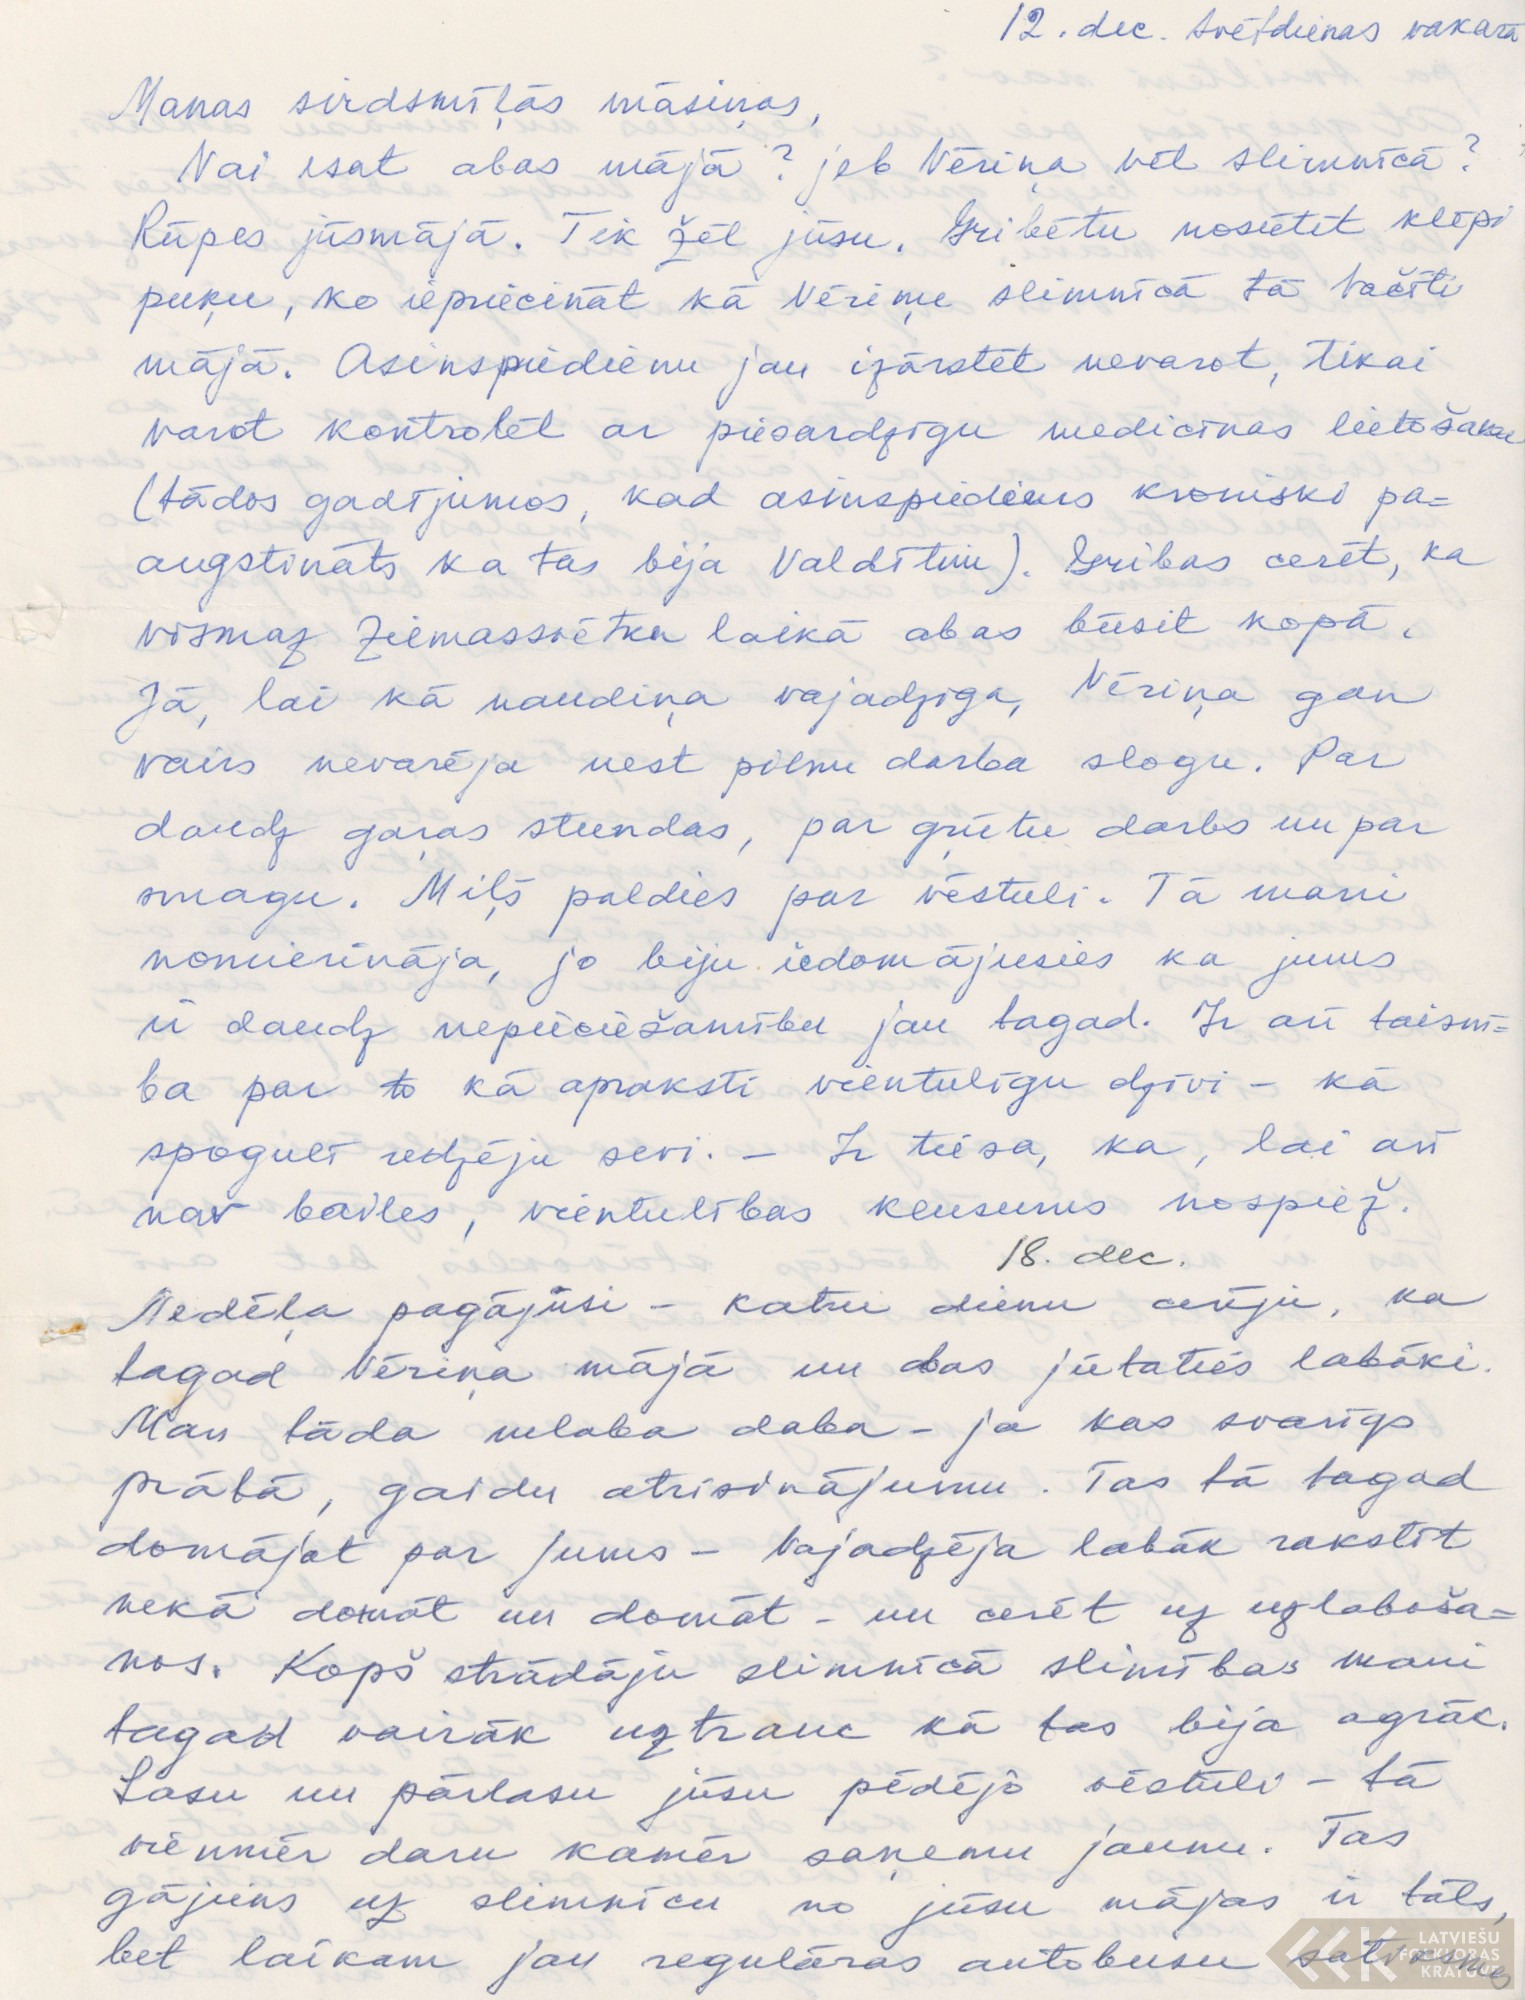 12. dec. svētdienas vakarā
Manas sirdsmīļās māsiņas,
Vai esat abas mājā? jeb Vēriņa vēl slimnīcā?
Rūpes jūsmājā. Tik žēl jūsu. Gribētu nosūtīt klēpi
puķu, ko iepriecināt kā Vēriņu slimnīcā tā Vačīti
mājā. Asinspiedienu jau izārstēt nevarot, tikai
varot kontrolēt ar piesardzīgu medicīnas lietošanu
(tādos gadījumos, kad asinspiediens kroniski pa=
augstināts ka tas bija Valdītim). Gribas cerēt, ka
vismaz Ziemassvētku laikā abas būsit kopā.
Jā, lai kā naudiņa vajadzīga, Vēriņa gan
vairs nevarēja nest pilnu darba slogu. Par
daudz garas stundas, par grūtu darbs un par
smagu. Mīļš paldies par vēstuli. Tā mani
nomierināja, jo biju iedomājusies ka jums
ir daudz nepieciešamību jau tagad. Ir arī taisnī=
ba par to kā apraksti vientulīgu dzīvi – kā
spogulī redzēju sevi. – Ir tiesa, ka, lai arī
nav bailes, vientulības klusums nospiež.
18. dec.
Nedēļa pagājusi – katru dienu cerēju, ka
tagad Vēriņa mājā un abas jūtaties labāki.
Man tāda nelaba daba – ja kas svarīgs
prātā, gaidu atrisinājumu. Tas tā tagad
domājot par Jums – vajadzēja labāk rakstīt
nekā domāt un domāt – un cerēt uz uzlaboša=
nos. Kopš strādāju slimnīcā slimības mani
tagad vairāk uztrauc kā tas bija agrāk.
Lasu un pārlasu jūsu pēdējo vēstuli – tā
vienmēr daru kamēr saņemu jaunu. Tas
gājiens uz slimnīcu no jūsu mājas ir tāls,
bet laikam jau regulāras autobusu satiksme
LATVIEŠU
FOLKLORAS
KRĀTUVE